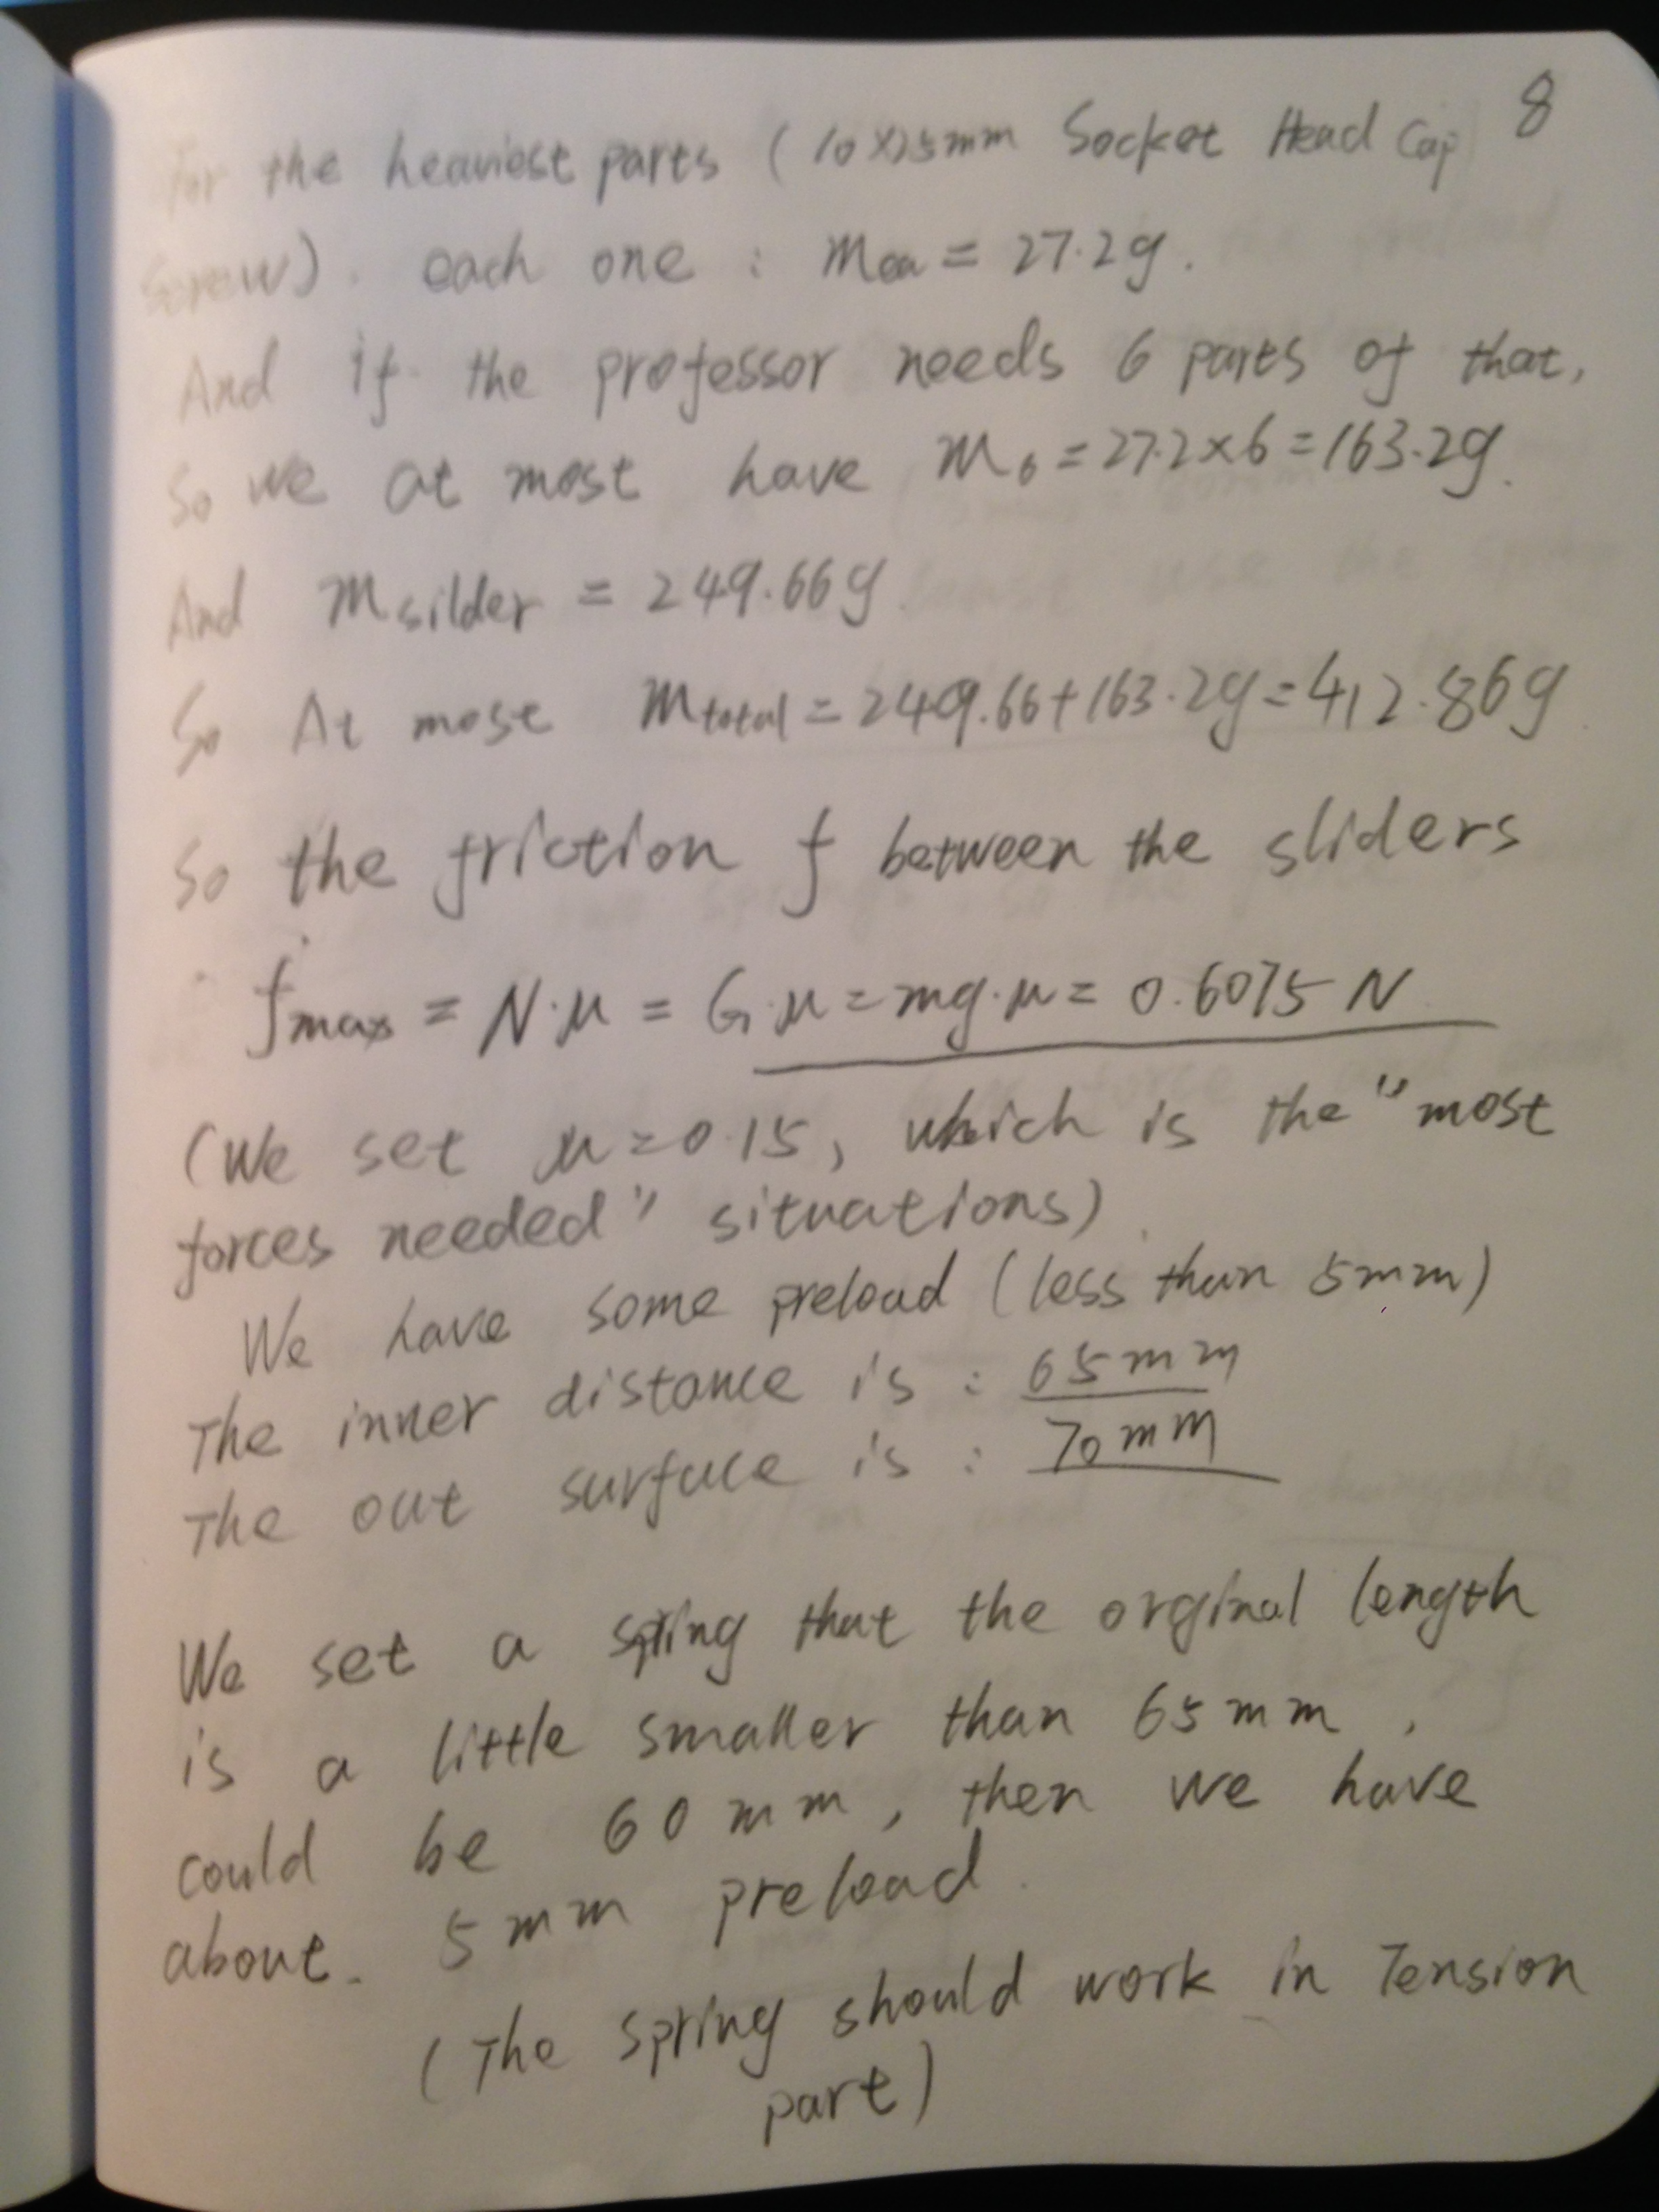 8
For the heaviest parts (10X25mm Socket Head Cap
Screw). each one : mea = 27.2g.
And if the professor needs 6 parts of that,
So we at most have m6 = 27.2×6 = 163.2g.
And msilder = 249.66g
So At most mtotal = 249.66+163.2g = 412.86g
So the friction f between the sliders
fmax = N·μ = G·μ = mg·μ = 0.6075 N
(We set μ = 0.15, which is the "most
forces needed" situations)
We have some preload (less than 5mm)
The inner distance is : 65mm
The out surface is : 70mm
We set a spring that the orginal length
is a little smaller than 65mm,
could be 60mm, then we have
about. 5mm preload.
(The spring should work in Tension
part)